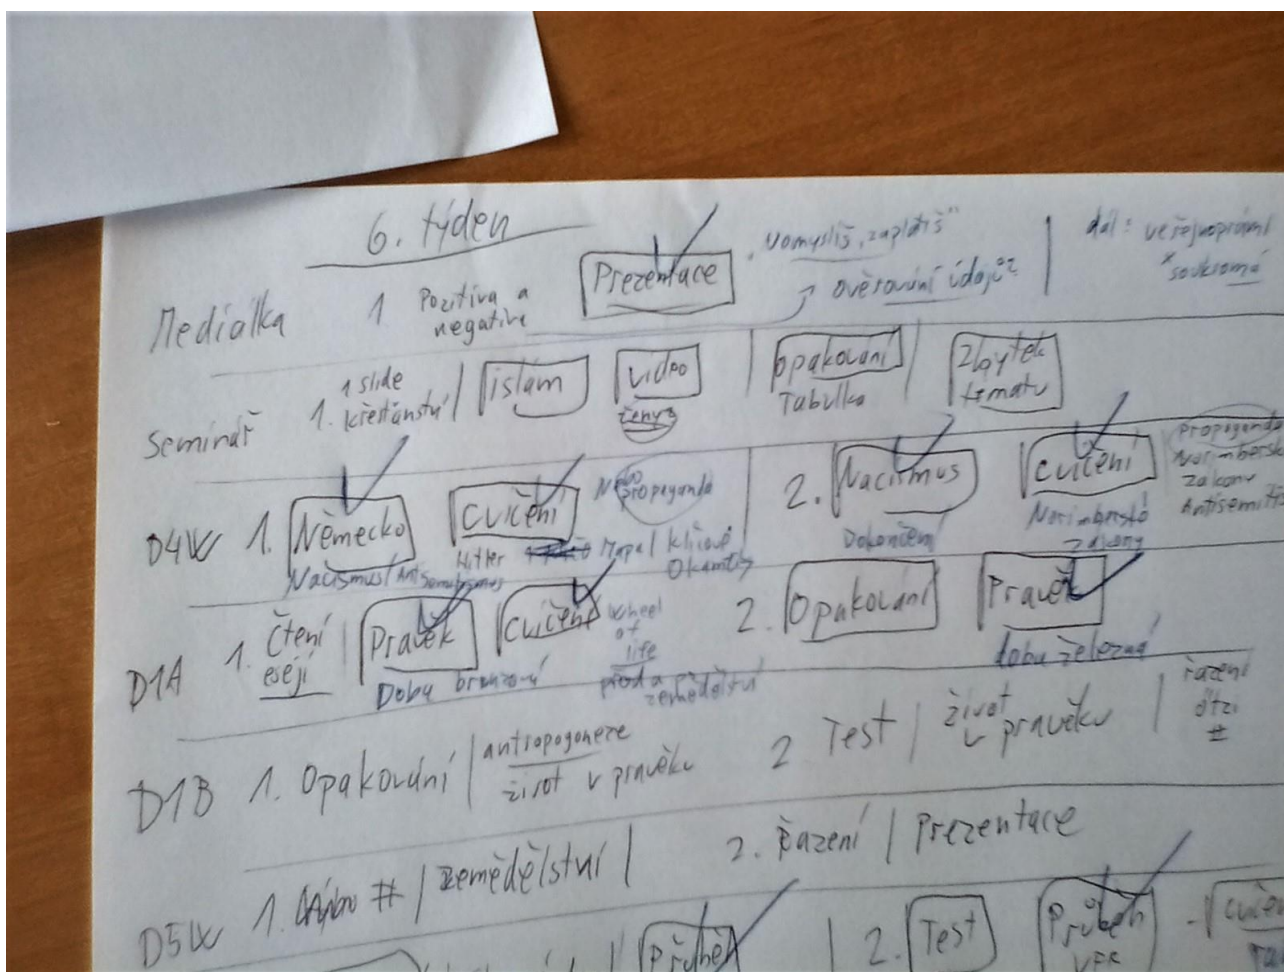 6. týden
Medialka 1 Pozitiva a negativa Prezentace "Nemyslíš, zaplatíš" ověřování údajů? dál: veřejnoprávní x soukromá
Seminář 1. 1 slide křesťanství islám video ženy? opakování Tabulka Zbytek tématu
D4W 1. Německo Nacismus Antisemitismus cvičení Hitler Nebo propaganda Mapa klíčové okamžiky 2. Nacismus Dokončení cvičení Norimberské zákony Propaganda Norimberské zákony Antisemit
D1A 1. Čtení esejí Pravěk Doba bronzová cvičení Wheel of life před a zemědělství 2. Opakování Pravěk doba železná
D1B 1. Opakování antropogeneze život v pravěku 2 Test život v pravěku řazení ötzi #
D5W 1. # zemědělství 2. Řazení Prezentace
Průběh 2. Test Průběh cvičen